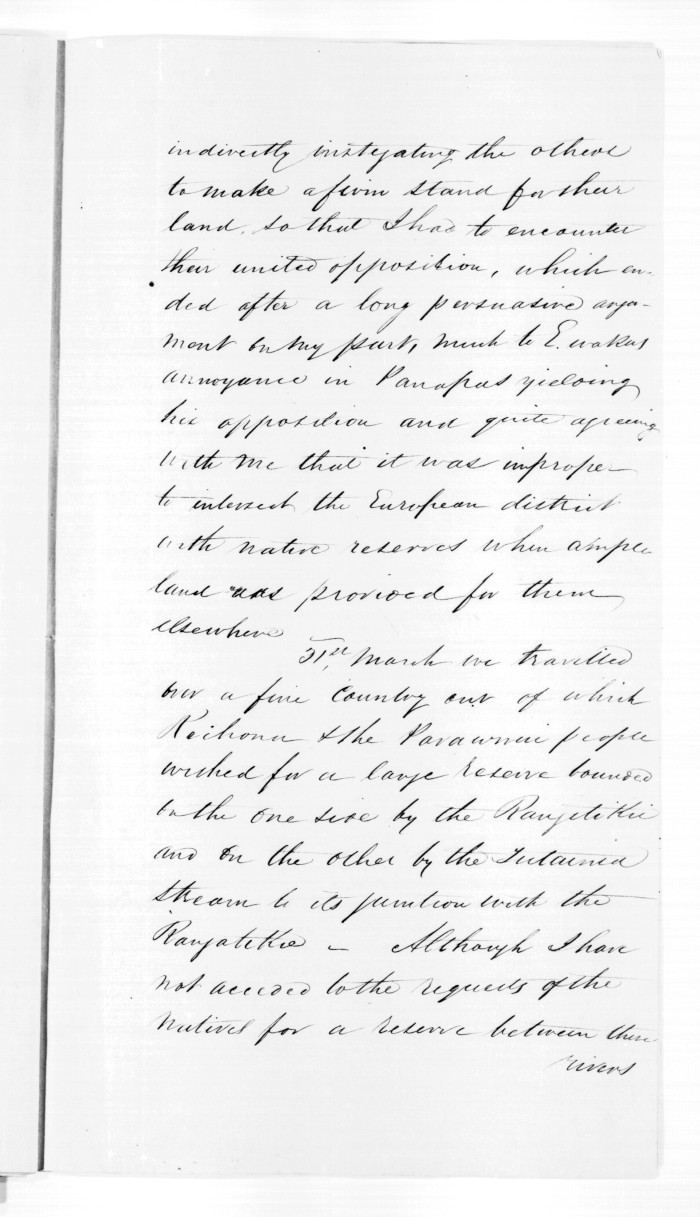 indirectly instigating the others
to make a firm stand for their
land, so that I had to encounter
their united opposition, which en-
ded after a long persuasive argu-
ment on my part, much to E. wakas
annoyance in Panapas yielding
his opposition and quite agreeing
with me that it was improper
to intersect the European district
with native reserves when ample
land was provided for them
elsewhere
31st, March we travelled
over a fine Country out of which
Reihana & the Parawanui people
wished for a large reserve bounded
on the one side by the Rangitikie
and on the other by the Tutaenui
stream to its junction with the
Rangatikie — Although I have
not acceded to the requests of the
natives for a reserve between these
rivers